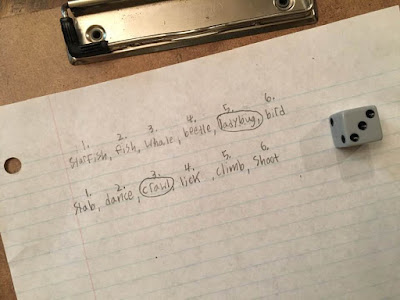 1. 2. 3. 4. 5. 6.
starfish, fish, whale, beetle, ladybug, bird
1. 2. 3. 4. 5. 6.
stab, dance, crawl, lick, climb, shoot